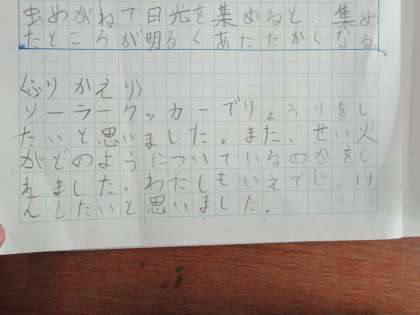 虫めがねで日光を集めると、集め
たところが明るくあたたかくなる
(ふりかえり)
ソーラークッカーでりょうりをし
たいと思いました。また、せい火
がどのようについているのかをし
れました。わたしもいえでじっけ
んしたいと思いました。